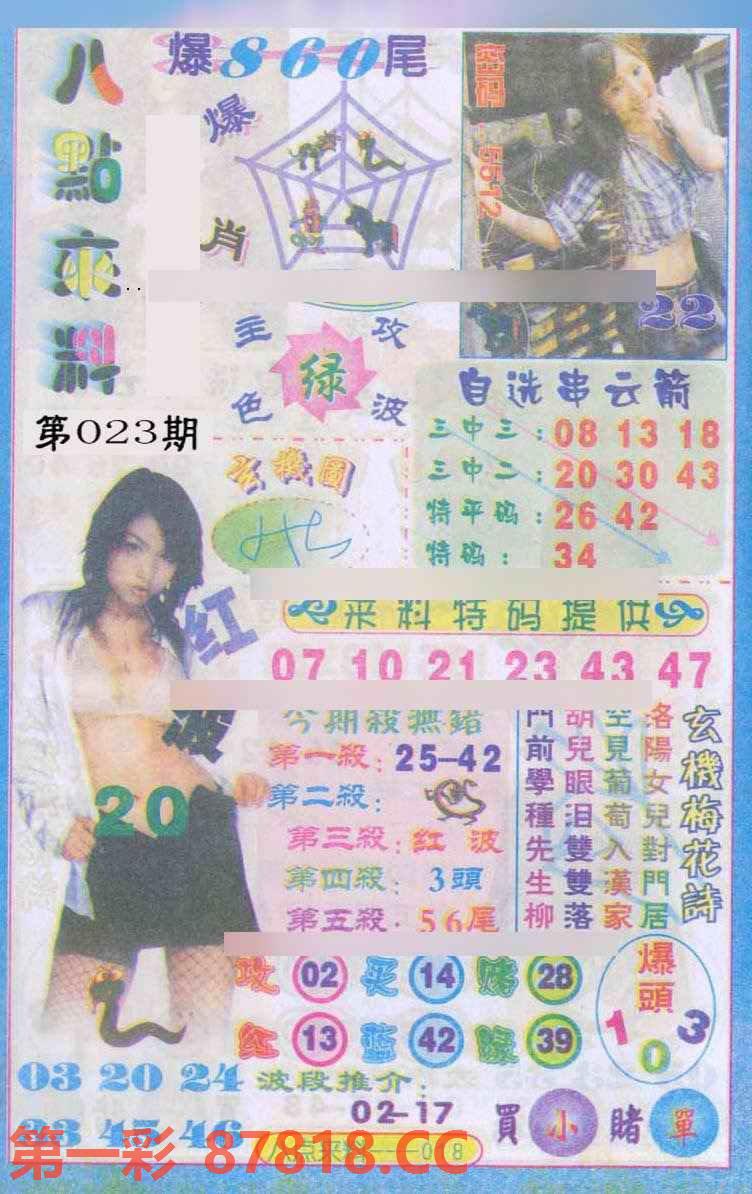 八點來料
爆860尾
爆肖
密码：5512
22
主攻
绿
色波
第023期
自选串云箭
三中三：08 13 18
三中二：20 30 43
特平码：26 42
特码：34
玄機圖
红波
20
来料特码提供
07 10 21 23 43 47
今期殺無錯
第一殺：25-42
第二殺：
第三殺：红波
第四殺：3頭
第五殺：56尾
玄機梅花詩
洛陽女兒對門居
空見葡萄入漢家
胡兒眼泪雙雙落
門前學種先生柳
攻 02 买 14 赌 28
红 13 蓝 42 綠 39
爆頭
1 0 3
03 20 24
波段推介：
02-17
買小賭單
第一彩 87818.CC